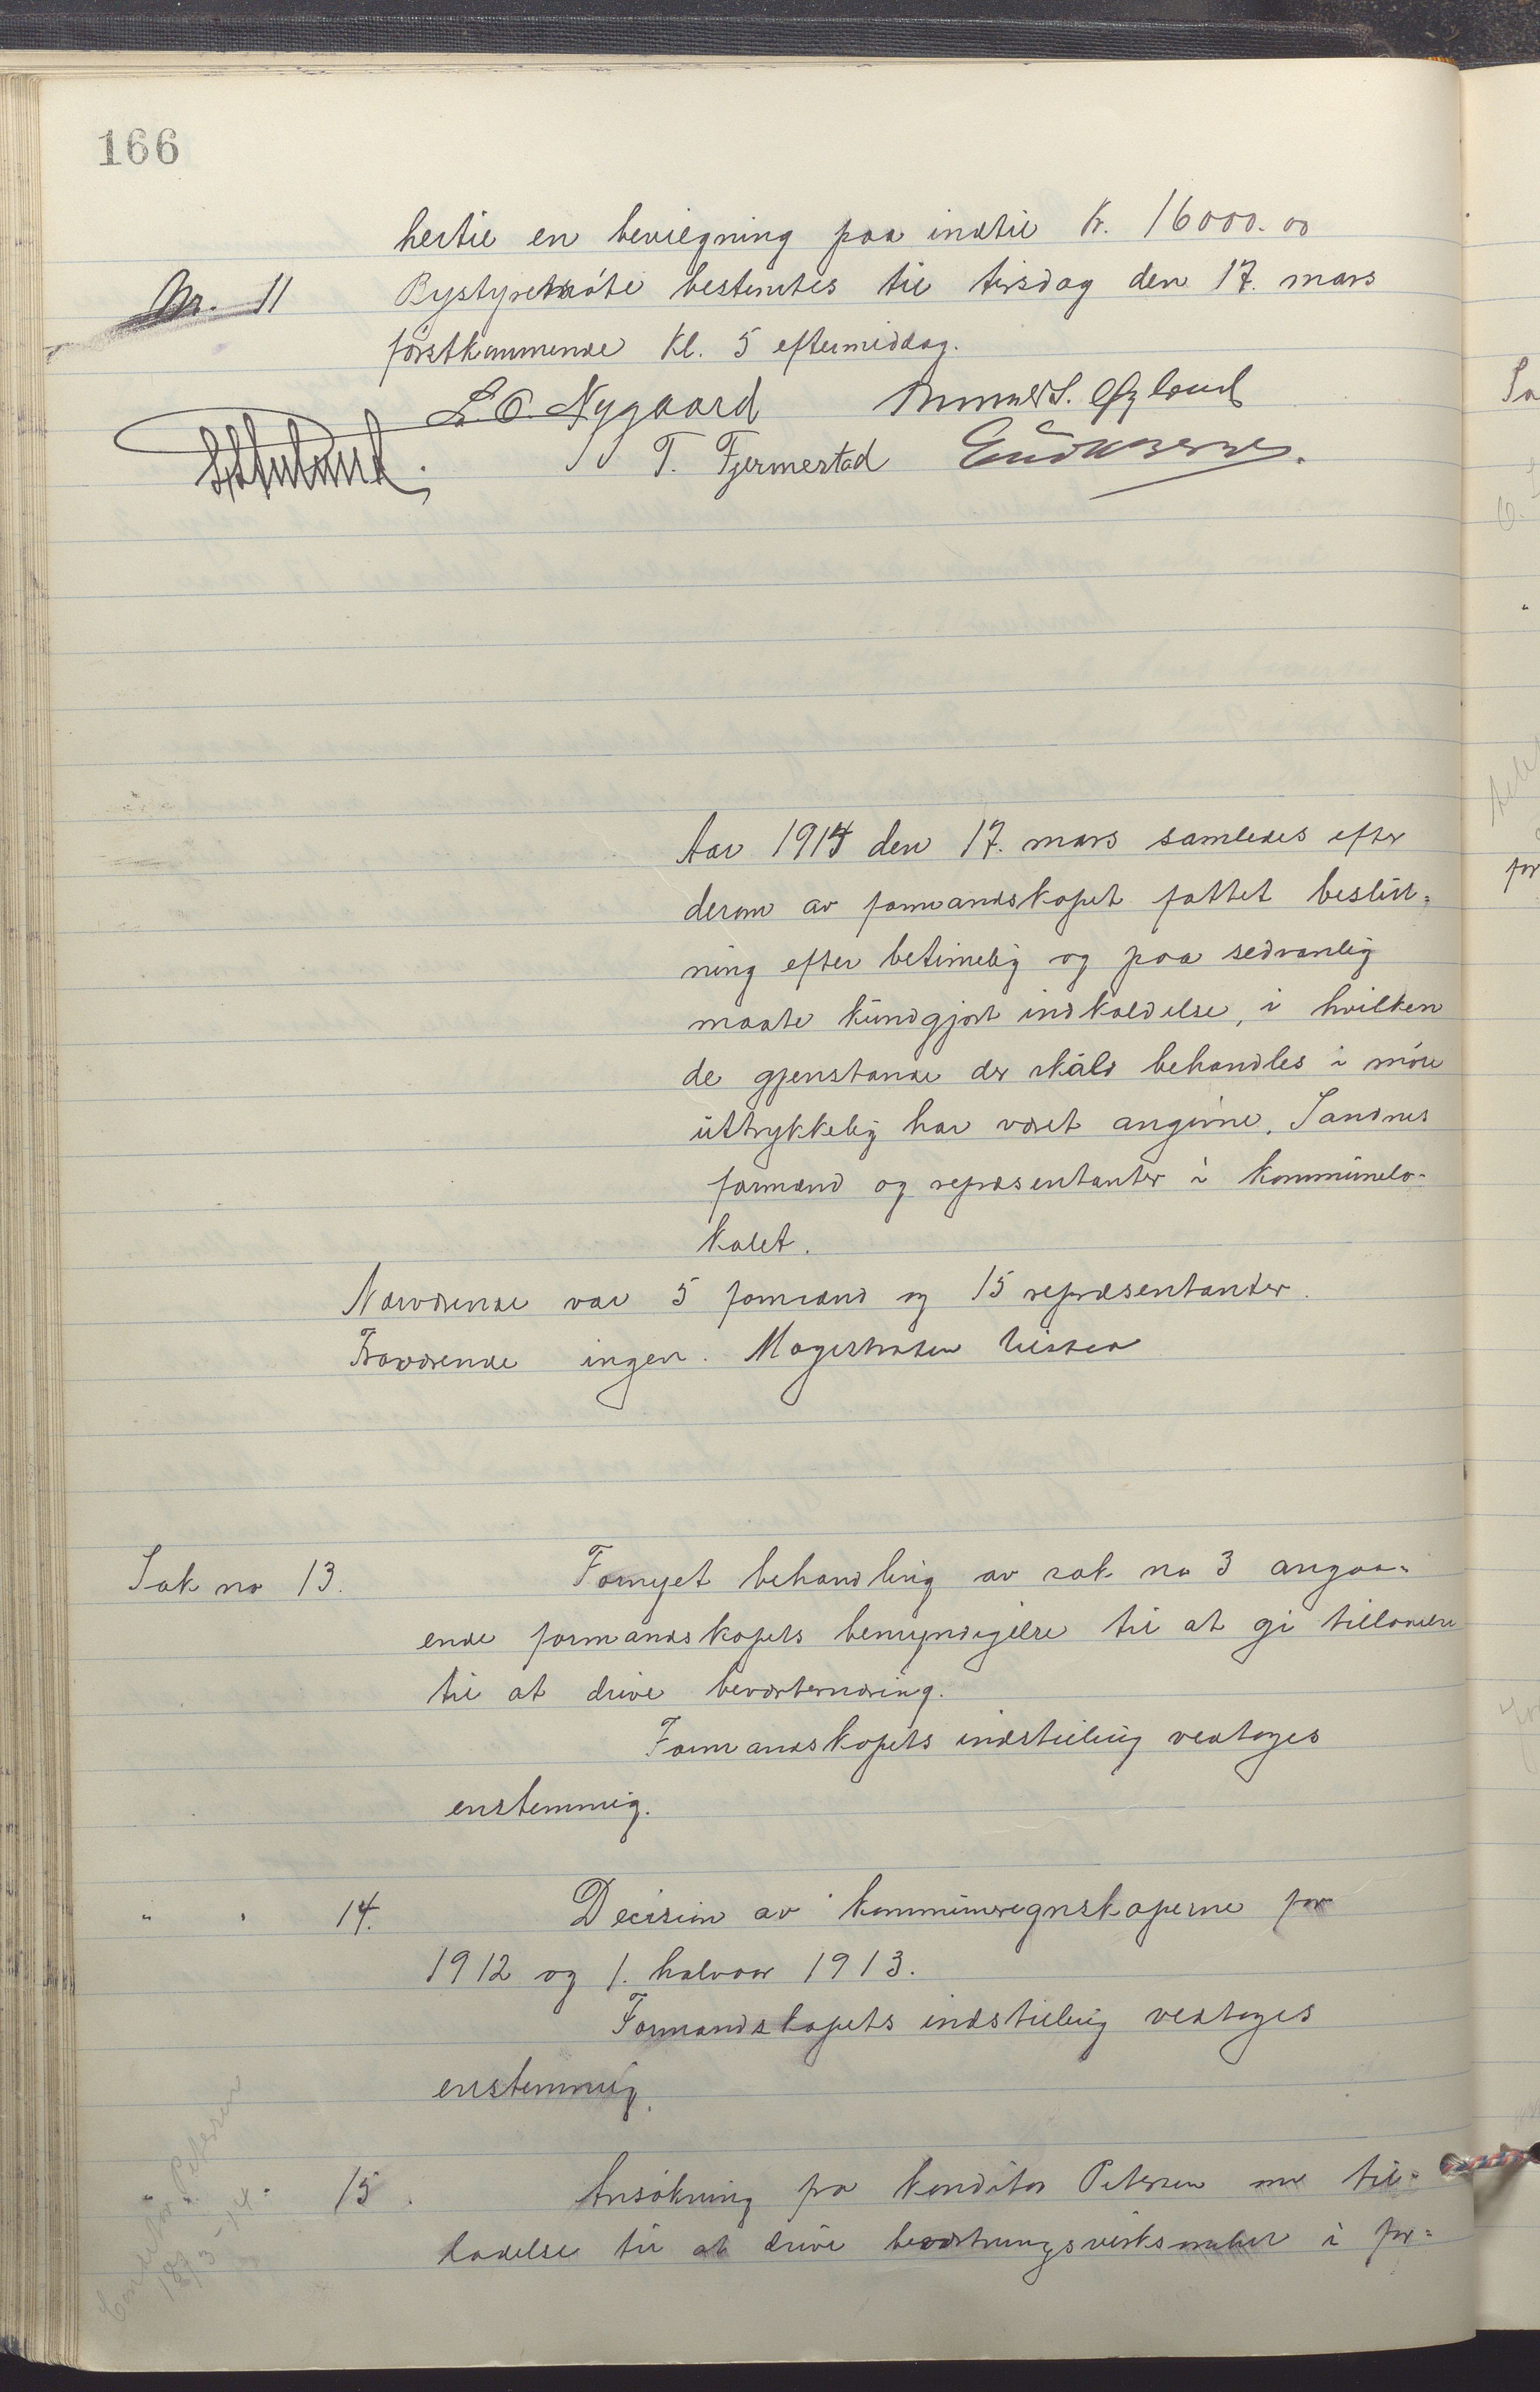 166
hertil en bevilgning paa indtil Kr. 16000.00
Nr. 11 Bystyremøte bestemtes til tirsdag den 17. mars
førstkommende Kl. 5 eftermiddag.
L. O. Nygaard
T. Fjermestad
Aar 1914 den 17. mars samledes efter
derom av formandskapet fattet beslut-
ning efter betimelig og paa sedvanlig
maate kundgjort indkaldelse, i hvilken
de gjenstande der skulde behandles i møte
uttrykkelig har været angivne, Sandnes
formænd og repræsentanter i kommunelo-
kalet.
Nærværende var 5 formænd og 15 repræsentanter.
Fraværende ingen. Magistraten tilstede
Sak no 13. Fornyet behandling av sak no 3 angaa-
ende formandskapets bemyndigelse til at gi tilladelse
til at drive beværternæring.
Formandskapets indstilling vedtages
enstemmig.
" " 14. Decision av kommuneregnskaperne for
1912 og 1. halvaar 1913.
Formandskapets indstilling vedtages
enstemmig.
" " 15. Ansøkning fra konditor Petersen om til-
ladelse til at drive beværtningsvirksomhet i for-
Conditor Petersen
18/3-14